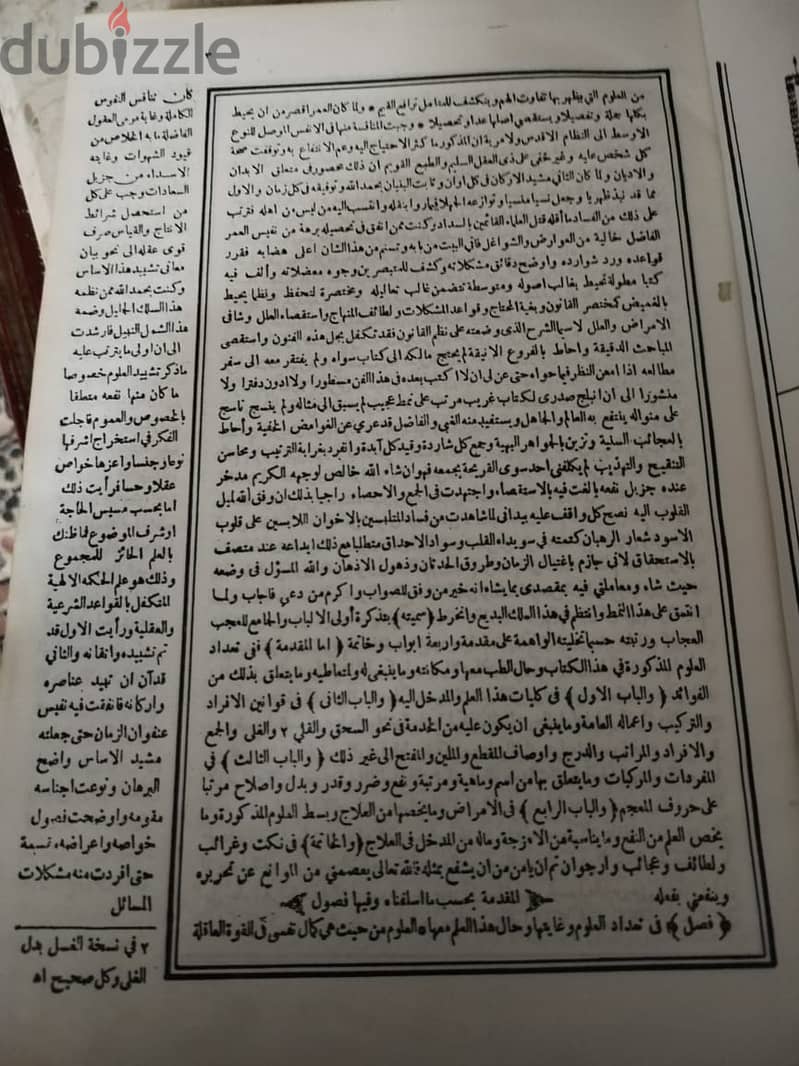 dubizzle
٣
من العلوم التي يظهر بها تفاوت الهمم وينكشف للمتأمل ترافع القيم * ولما كان العمر اقصر من ان يحيط
بكلها جملة وتفصيلا ويستقصي اصلها عدا وتحصيلا * وجبت المنافسة منها في الانفس الموصل للنوع
الاوسط الى النظام الاقدس ولا مرية ان المذكور ما كثر الاحتياج اليه وعم الانتفاع به وتوقفت صحة
كل شخص عليه وغير خفي على ذى العقل السليم والطبع القويم ان ذلك محصور في متعلق الابدان
والاديان ولما كان الثاني مشيد الاركان في كل اوان وثابت البنيان بحمد الله وتوفيقه في كل زمان والاول
مما قد نبذ ظهريا وجعل نسيا منسيا وتوازعه الجهلا فيماروا بنقله وانتسب اليه من ليس من اهله فترتب
على ذلك من الفساد ما أقله قتل العلماء القائمين بالسداد وكنت ممن انفق في تحصيله برهة من نفيس العمر
الفاضل خالية من العوارض والشواغل فاتى البيت من بابه وتسنم من هذا الشان اعلى هضابه فقرر
قواعده ورد شوارده واوضح دقائق مشكلاته وكشف للمتبصرين وجوه معضلاته وألف فيه
كتبا مطولة تحيط بغالب اصوله ومتوسطة تتضمن غالب تعاليله ومختصرة لتحفظ ونظما يحيط
بالغميض كمختصر القانون وبغية المحتاج وقواعد المشكلات ولطائف المنهاج واستقصاء العلل وشافى
الامراض والعلل لاسيما الشرح الذى وضعته على نظم القانون فقد تكفل بجل هذه الفنون واستقصى
المباحث الدقيقة واحاط بالفروع الانيقة لم يحتج مالكه الى كتاب سواه ولم يفتقر معه الى سفر
مطالعه اذا امعن النظر فيما حواه حتى عن لى ان لا اكتب بعده في هذا الفن مسطورا ولا ادون دفترا ولا
منشورا الى أن انبلج صدرى لكتاب غريب مرتب على نمط عجيب لم يسبق الى مثاله ولم ينسج ناسج
على منواله ينتفع به العالم والجاهل ويستفيد منه الغبي والفاضل قد عري عن الغوامض الخفية وأحاط
بالعجائب السنية وتزين بالجواهر البهية وجمع كل شاردة وقيد كل آبدة وانفرد بغرابة الترتيب ومحاسن
التنقيح والتهذيب لم يكلفنى احد سوى القريحة بجمعه فهو ان شاء الله خالص لوجهه الكريم مدخر
عنده جزيل نفعه بالغت فيه بالاستقصاء واجتهدت في الجمع والاحصاء راجيا بذلك ان وفق الله لميل
القلوب اليه نصح كل واقف عليه بيدانى لما شاهدت من فساد المتلبسين بالاخوان اللابسين على قلوب
الاسود شعار الرهبان كتمته في سويداء القلب وسواد الاحداق متطلبا مع ذلك ابداعه عند متصف
بالاستحقاق لانى جازم باغتيال الزمان وطروق الحدثان وذهول الاذهان والله المسؤل في وضعه
حيث شاء ومعاملتي فيه بمقصدى بما يشاء انه خير من وفق للصواب واكرم من دعي فاجاب ولما
انتسق على هذا النمط وانتظم في هذا السلك البديع وانخرط (سميته) بتذكرة أولى الالباب والجامع للعجب
العجاب ورتبته حسبما تخيلته الواهمة على مقدمة واربعة ابواب وخاتمة ﴿ اما المقدمة ﴾ فى تعداد
العلوم المذكورة في هذا الكتاب وحال الطب معها ومكانته وما ينبغى له ولمتعاطيه وما يتعلق بذلك من
الفوائد ﴿ والباب الاول ﴾ فى كليات هذا العلم والمدخل اليه ﴿ والباب الثانى ﴾ فى قوانين الافراد
والتركيب واعماله العامة وما ينبغى ان يكون عليه من الخدمة فى نحو السحق والقلي ٢ والغلى والجمع
والافراد والمراتب والدرج واوصاف المقطع والملين والمفتح الى غير ذلك ﴿ والباب الثالث ﴾ في
المفردات والمركبات وما يتعلق بها من اسم وماهية ومرتبة ونفع وضرر وقدر وبدل واصلاح مرتبا
على حروف المعجم ﴿ والباب الرابع ﴾ فى الامراض وما يخصها من العلاج وبسط العلوم المذكورة وما
يخص العلم من النفع وما يناسبه من الامزجة وماله من المدخل فى العلاج ﴿ والخاتمة ﴾ فى نكت وغرائب
ولطائف وعجائب وارجو ان تم ان يامن من ان يشفع بمثله فالله تعالى يعصمني من الموانع عن تحريره
وينفعني بفعله المقدمة بحسب ما اسلفناه وفيها فصول
﴿ فصل ﴾ فى تعداد العلوم وغايتها وحال هذا العلم معها * العلوم من حيث هي كمال نفسى في القوة العاقلة
كان تنافس النفوس
الكاملة وغاية مرمى العقول
الفاضلة ما به الخلاص من
قيود الشهوات وغايته
الاسداء من جزيل
السعادات وجب على كل
من استحصل شرائط
الانتاج والقياس صرف
قوى عقله الى نحو بيان
معانى تشييد هذا الاساس
وكنت بحمد الله ممن نظمه
هذا السلك الجليل وضمه
هذا الشمل النبيل فارشدت
الى ان اولى ما يترتب عليه
ماذكر تشييد العلوم خصوصا
ما كان منها نفعه متعلقا
بالخصوص والعموم فاجلت
الفكر في استخراج اشرفها
نوعا وجنسا واعزها خواص
عقلا وحسا فرأيت ذلك
اما بحسب مسيس الحاجة
او شرف الموضوع فما ظنك
بالعلم الحائز للمجموع
وذلك هو علم الحكمة الالهية
المتكفل بالقواعد الشرعية
والعقلية ورأيت الاول قد
تم تشييده واتقانه والثاني
قد آن ان تهيد عناصره
واركانه فانفقت فيه نفيس
عنفوان الزمان حتى جعلته
مشيد الاساس واضح
البرهان ونوعت اجناسه
مقومه واوضحت فصول
خواصه واعراضه، قسمة
حتى افردت منه مشكلات
المسائل
٢ في نسخة الغسل بدل
الغلى وكل صحيح اه